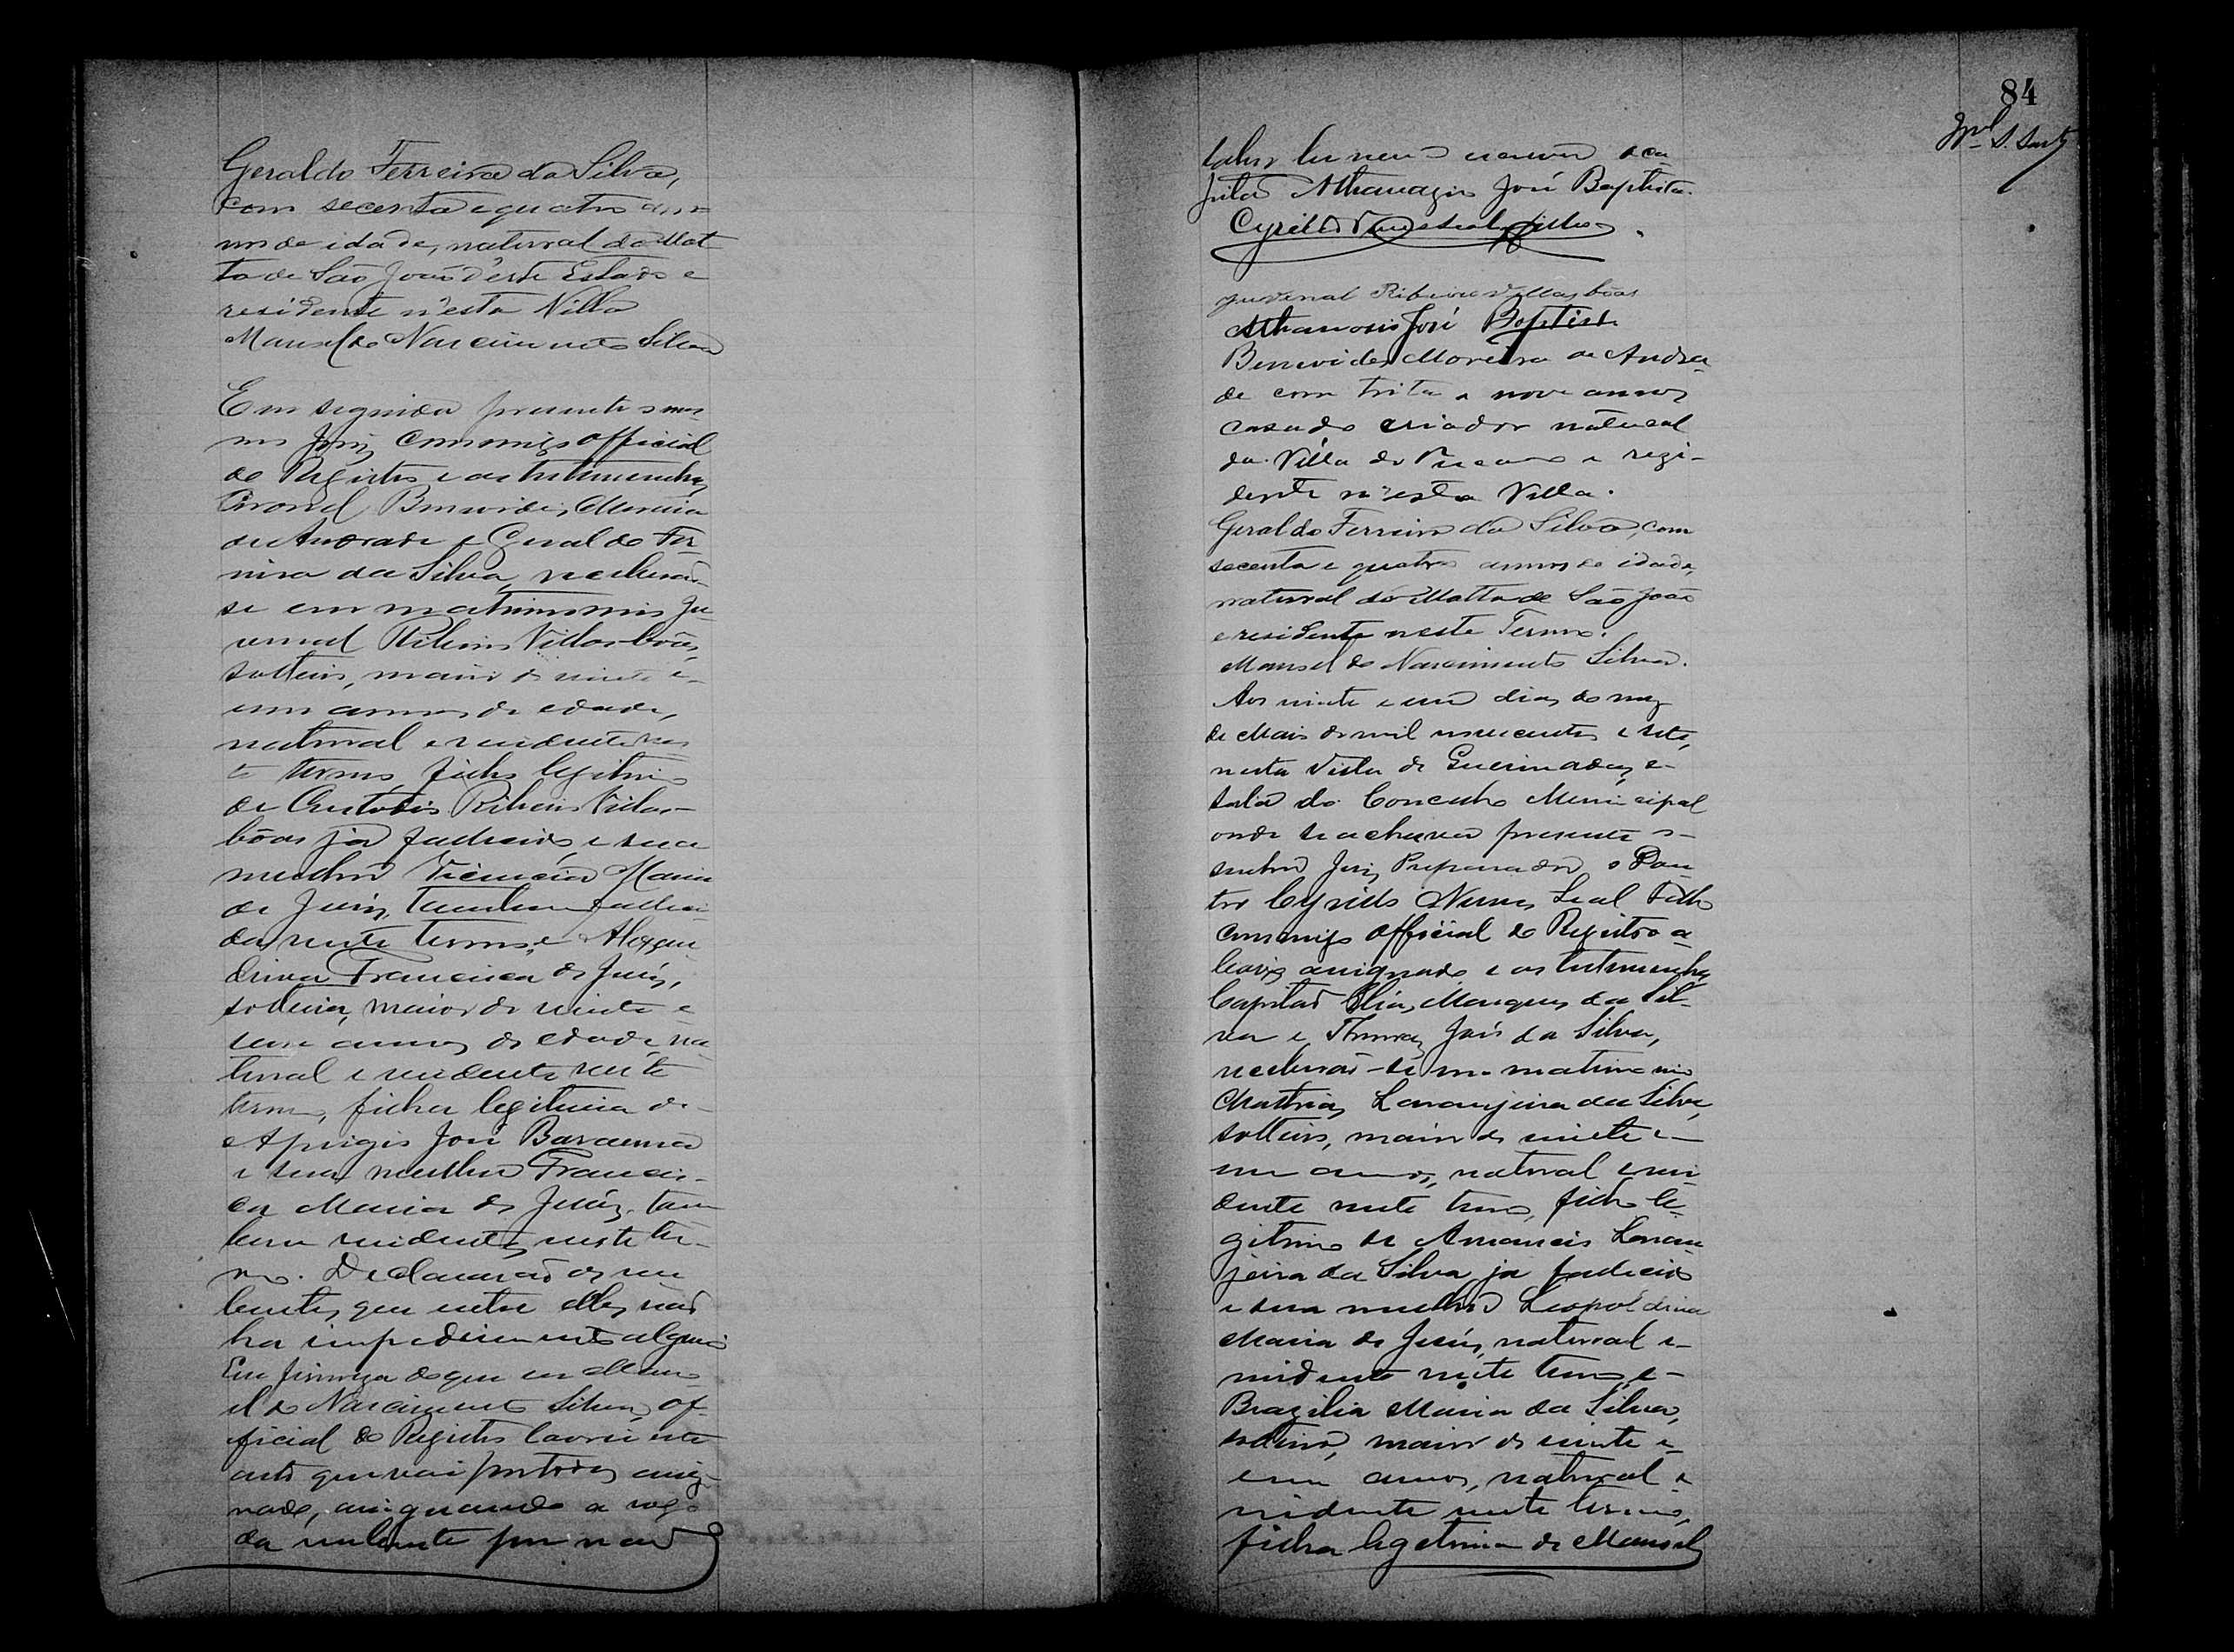 Geraldo Ferreira da Silva,
com secenta e quatro an-
nos de idade, natural da Mat
ta de São João d'este Estado e
residente n'esta Villa
Manoel do Nascimento Silva
Em seguida presente o mes
mo Juiz commigo official
do Registro e as testemunhas
Coronel Benevides Moreira
de Andrade e Geraldo Fer
reira da Silva, receberão
se em matrimonio Ju
venal Ribeiro Villas-bôas,
solteiro, maior de vinte e
um annos de edade,
natural e residente nes
te termo, filho legitimo
de Custodio Ribeiro Villas-
bôas já fallecido, e sua
mulher Vicencia Maria
de Jesus, tambem falleci
da neste termo, e Alexan
drina Francisca de Jesus,
solteira, maior de vinte e
um annos de edade, na
tural e residente neste
termo, filha legitima de
Aprigio José Barauna
e sua mulher Francis-
ca Maria de Jesus, tam
bem residentes neste ter-
mo. Declararão os nu
bentes que entre elles não
ha impedimento algum
Em firmeza do que eu Mano
el do Nascimento Silva, of-
ficial do Registro lavrei este
acto que vai por todos assig-
nado, assignando a rogo
da nubente por não
84
saber ler nem escrever o ca
pitão Athanazio José Baptista.
Cyrillo Nunes Leal Filho
Juvenal Ribeiro Villas bôas
Athanasio José Baptista
Benevides Moreira de Andra
de com trita e nove annos
casado criador natural
da Villa do e rezi-
dente n'esta Villa.
Geraldo Ferreira da Silva, com
secenta e quatro annos de idade,
natural da Matta de São João
e residente neste Termo.
Manoel do Nascimento Silva.
Aos vinte e um dias do mez
de Maio de mil novecentos e sete,
nesta Villa de Queimadas, e
sala do Concelho Municipal
onde se achava presente o
senhor Juiz Preparador o Dou
tor Cyrillo Nunes Leal Filho
commigo official do Registro a
baixo assignado e as testemunhas
Capitão Elias Marques da Sil-
va e Thomaz José da Silva,
receberão-se em matrimonio
Mathias Laranjeira da Silva,
solteiro, maior de vinte e
um annos, natural e resi
dente neste termo, filho le-
gitimo de Amancio Laran
jeira da Silva já fallecido
e sua mulher Leopoldina
Maria de Jesus, natural e
residente neste termo, e
Brazilia Maria da Silva,
solteira, maior de vinte e
um annos, natural e
residente neste termo,
filha legitima de Manoel